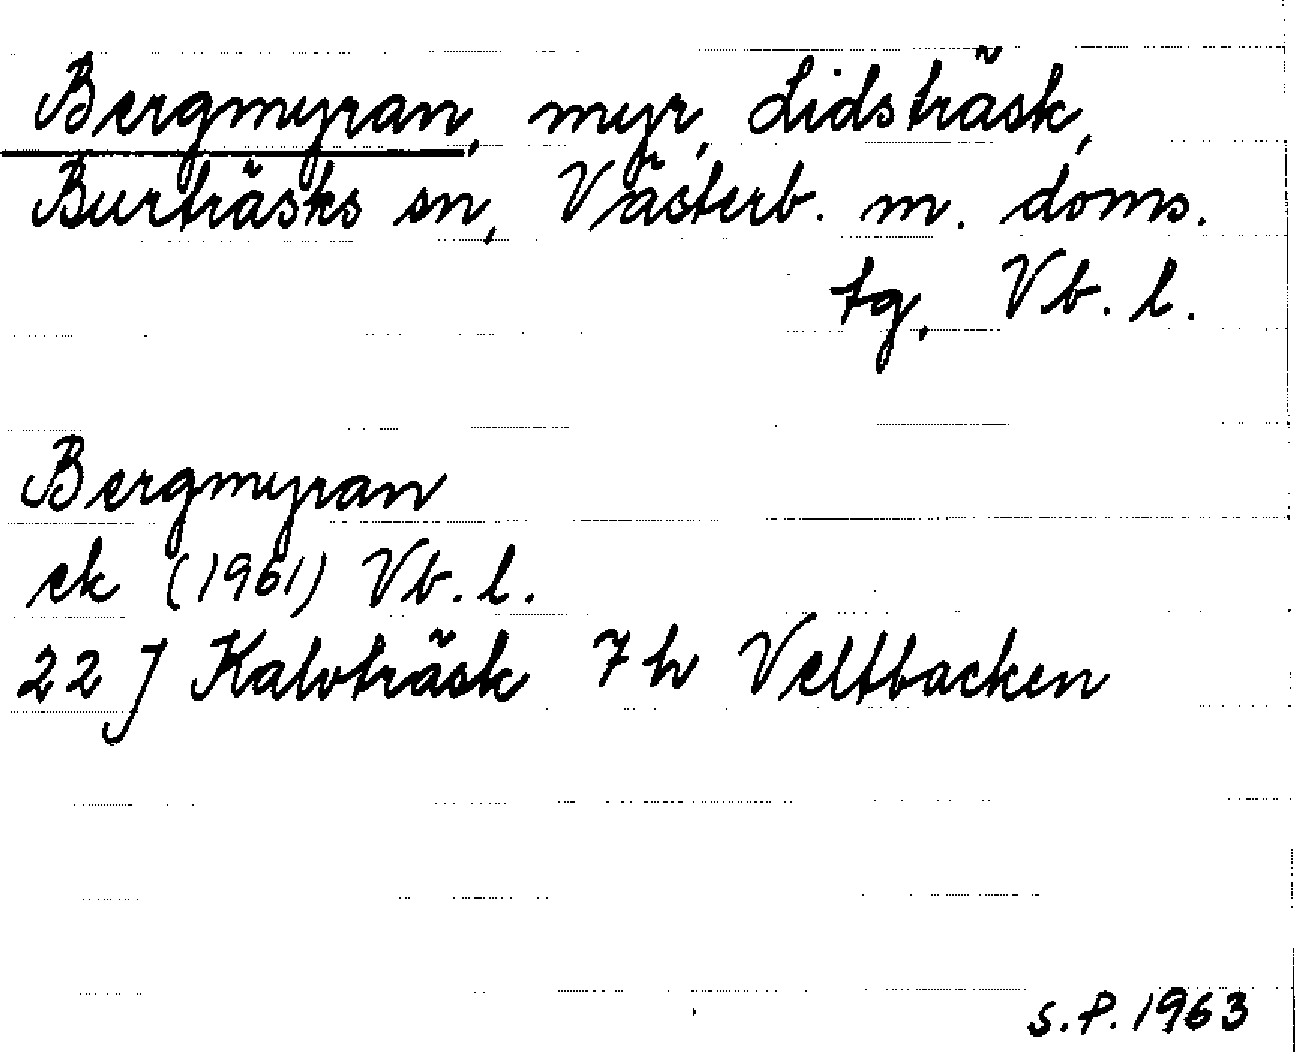 Bergmyran, myr, Lidsträsk,
Burträsks sn, Västerb. m. doms.
tg, Vb. l.
Bergmyran
ek (1961) Vb. l.
22 J Kalvträsk 7 h Veltbacken
S.P. 1963